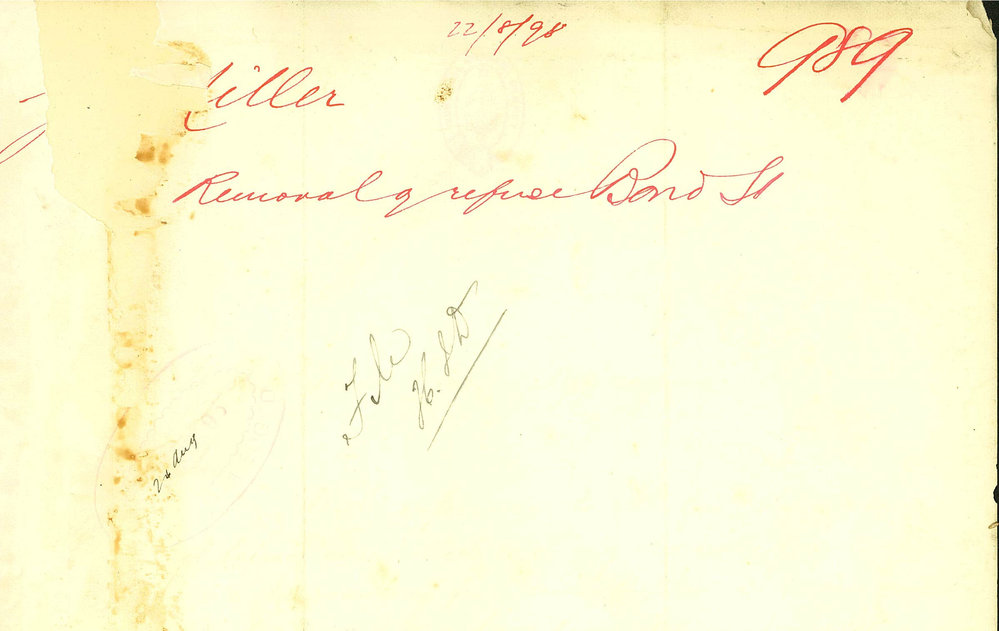 22/8/98
989
J Miller
Removal of refuse Bond St
File
26 Aug